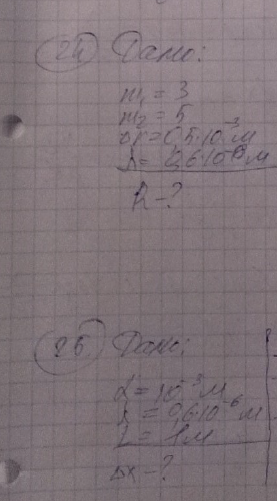 24 Дано:
m₁ = 3
m₂ = 5
Δr = 0,5·10⁻³ м
λ = 0,6·10⁻⁶ м
R - ?
25 Дано:
d = 10⁻³ м
λ = 0,6·10⁻⁶ м
L = 1 м
Δx - ?